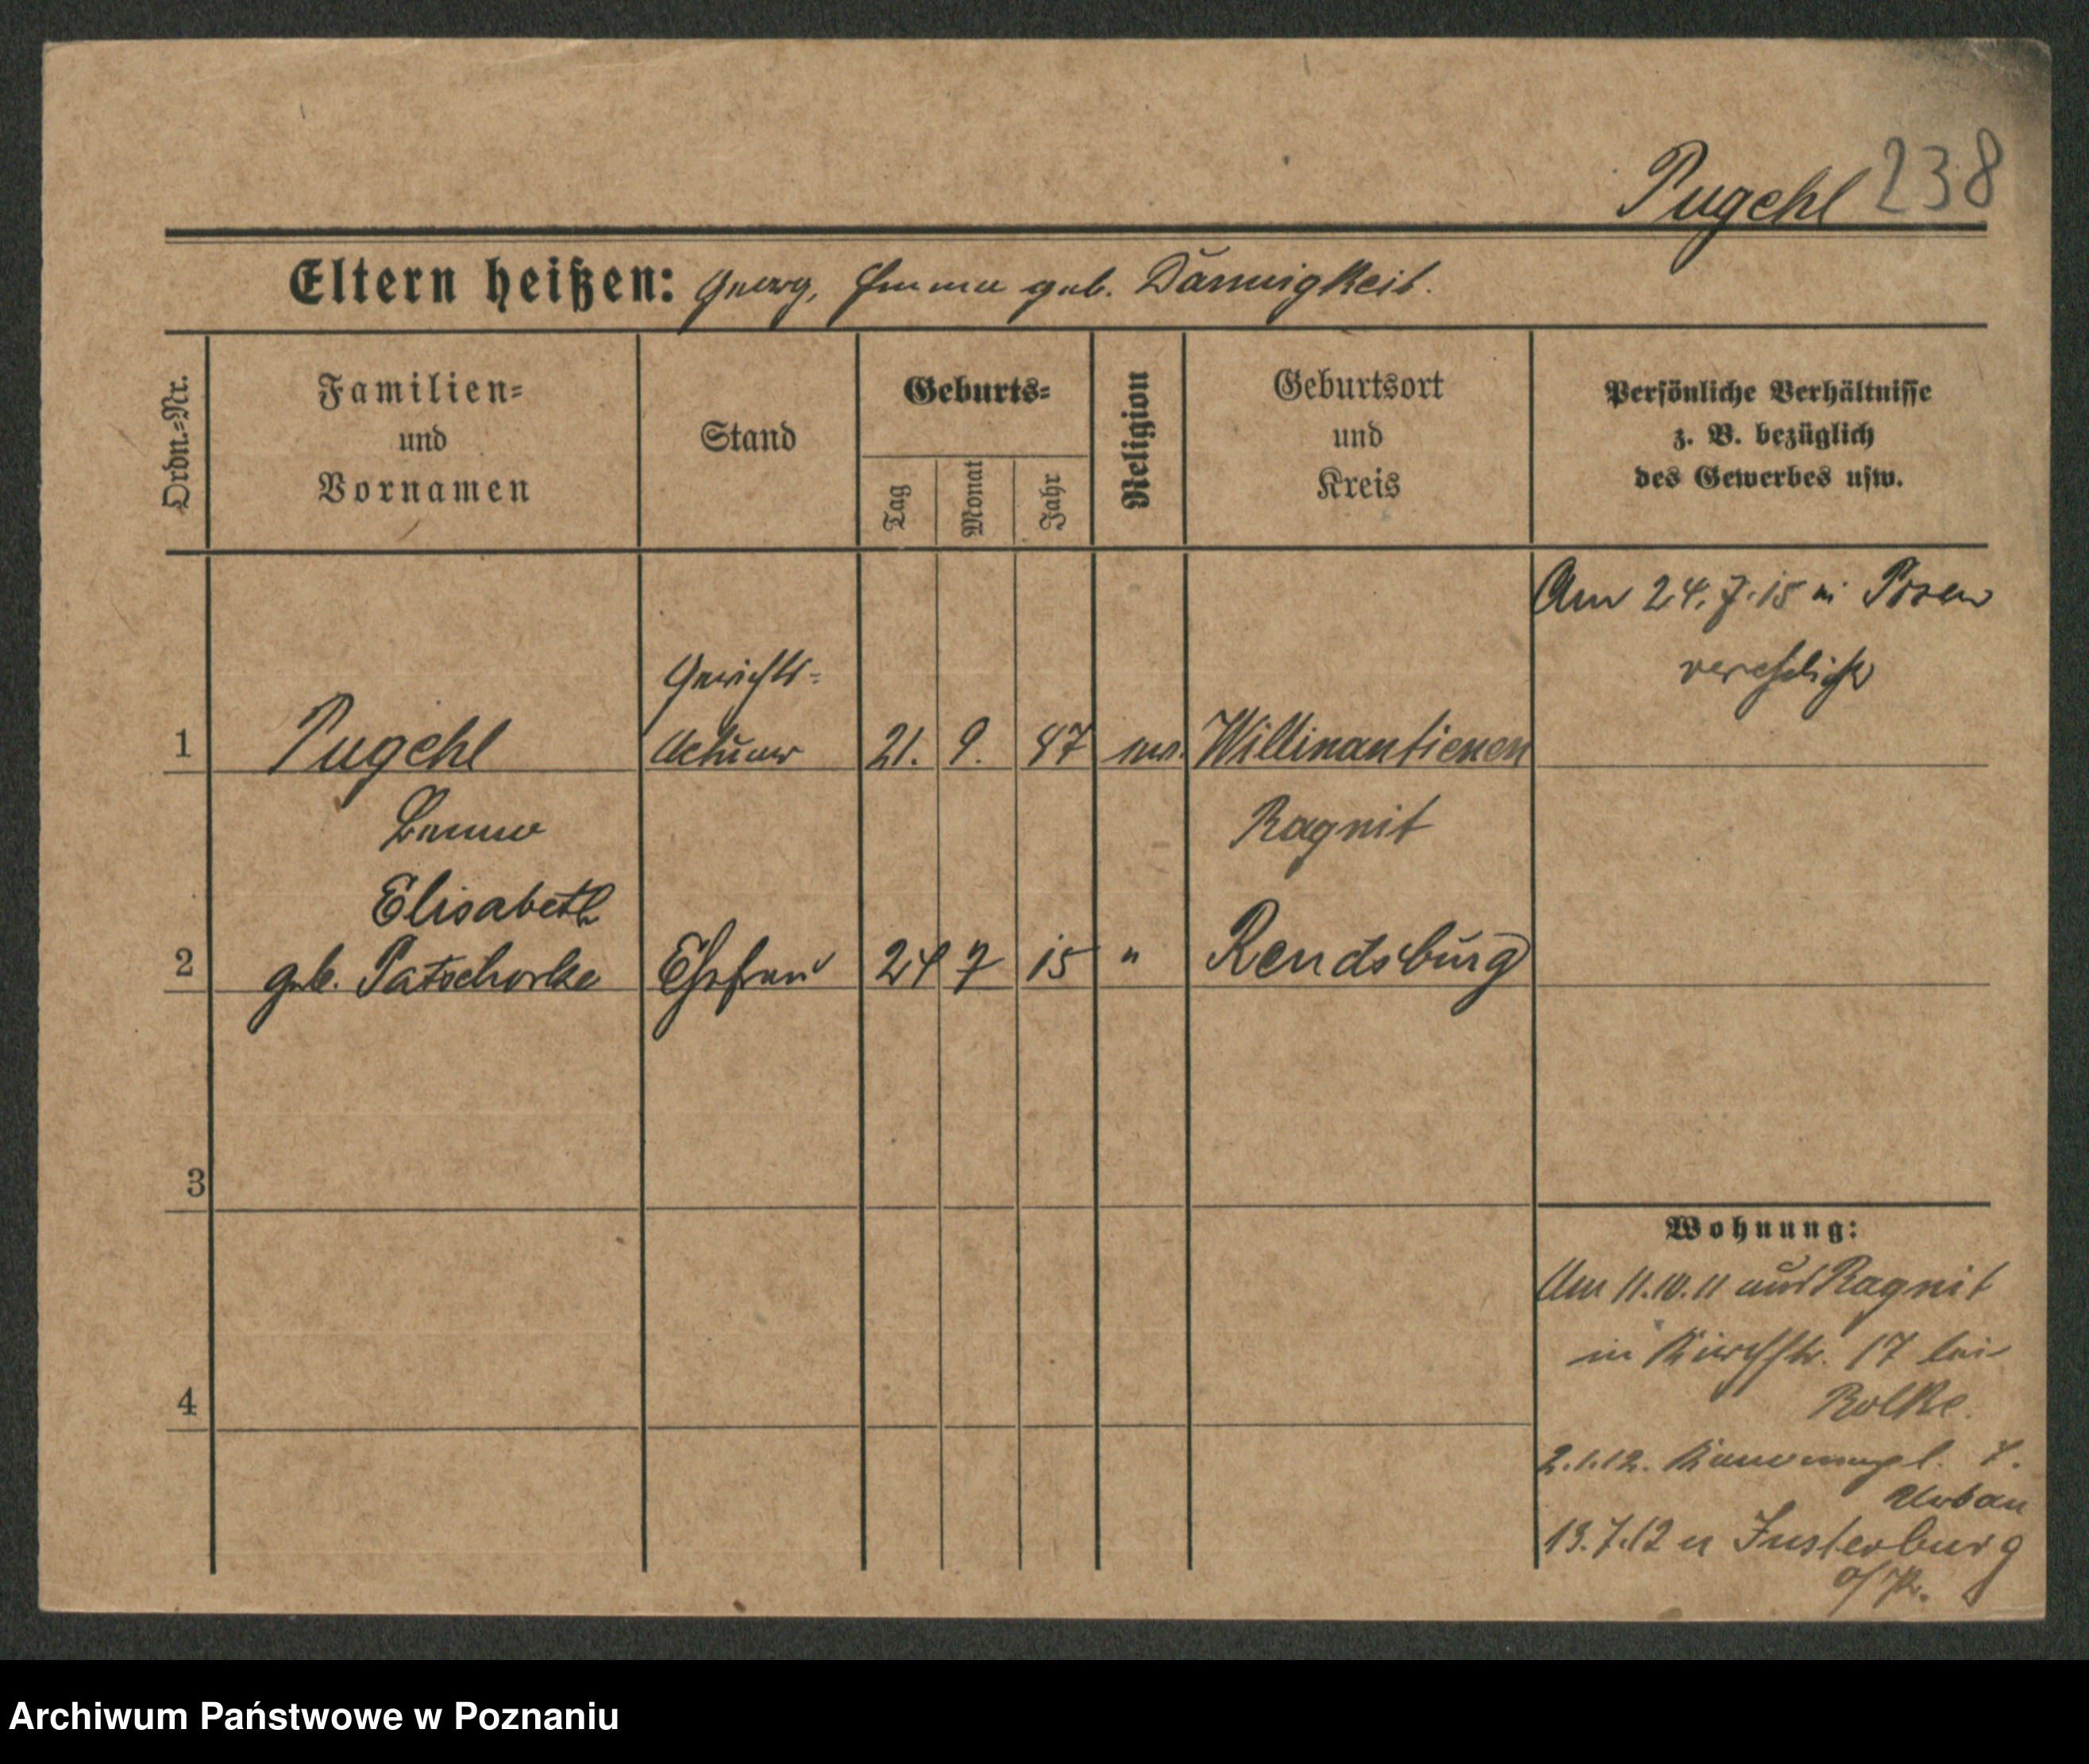 Pugehl 238
Eltern heißen: Georg, Emma geb. Dännigkeit.
Ordn.=Nr.
Familien=
und
Vornamen
Stand
Geburts=
Tag
Monat
Jahr
Religion
Geburtsort
und
Kreis
Persönliche Verhältnisse
z. B. bezüglich
des Gewerbes usw.
Am 24.7.15 in Posen
verehelicht
Gerichts=
1 Pugehl Actuar 21. 9. 87 ev. Willinantienen
Ragnit
Elisabeth
2 geb. Patschorke Ehefrau 24 7 15 " Rendsburg
3
4
Wohnung:
Am 11.10.11 aus Ragnit
in Kirchstr. 17 bei
Rolke.
2.1.12. 4.
Urban
13.7.12 n Insterburg
o/Pr.